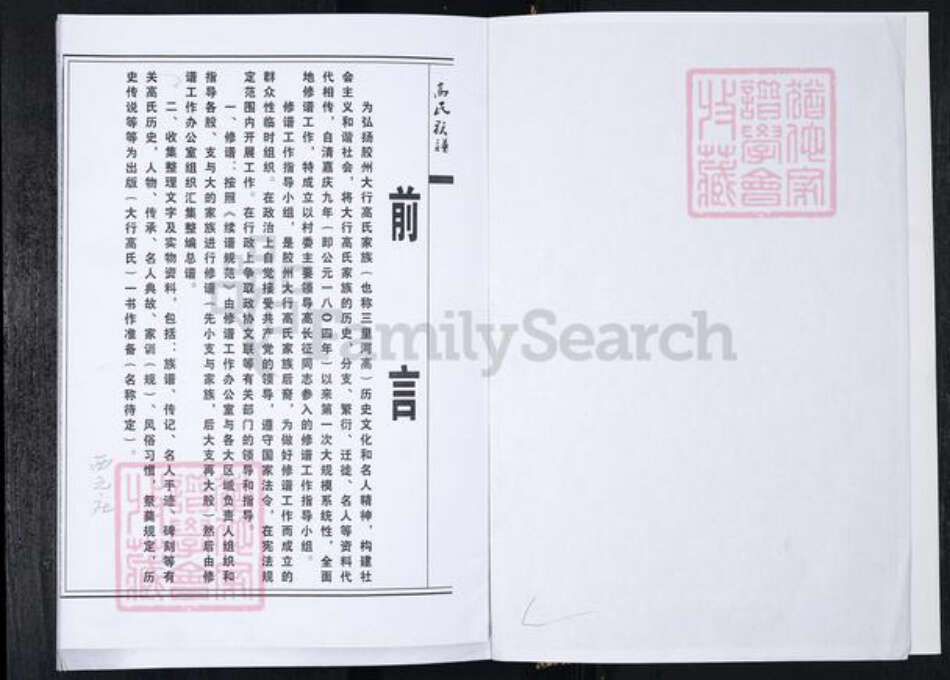 高氏族谱
前言
为弘扬胶州大行高氏家族（也称三里河高）历史文化和名人精神，构建社
会主义和谐社会，将大行高氏家族的历史，分支、繁衍、迁徙、名人等资料代
代相传，自清嘉庆九年（即公元一八〇四年）以来第一次大规模系统性，全面
地修谱工作，特成立以村委主要领导高长征同志参入的修谱工作指导小组。
修谱工作指导小组，是胶州大行高氏家族后裔，为做好修谱工作而成立的
群众性临时组织。在政治上自觉接受共产党的领导，遵守国家法令，在宪法规
定范围内开展工作。在行政上争取政协文联等有关部门的领导和指导。
一、修谱：按照《续谱规范》由修谱工作办公室与各大区域负责人组织和
指导各股、支与大的家族进行修谱（先小支与家族，后大支再大股）然后由修
谱工作办公室组织汇集整编总谱。
二、收集整理文字及实物资料，包括：族谱、传记、名人手迹、碑刻等有
关高氏历史，人物、传承、名人典故、家训（规）、风俗习惯，祭奠规定、历
史传说等等为出版（大行高氏）一书作准备（名称待定）。
犹他家
谱学会
收藏
犹他家
谱学会
收藏
FamilySearch